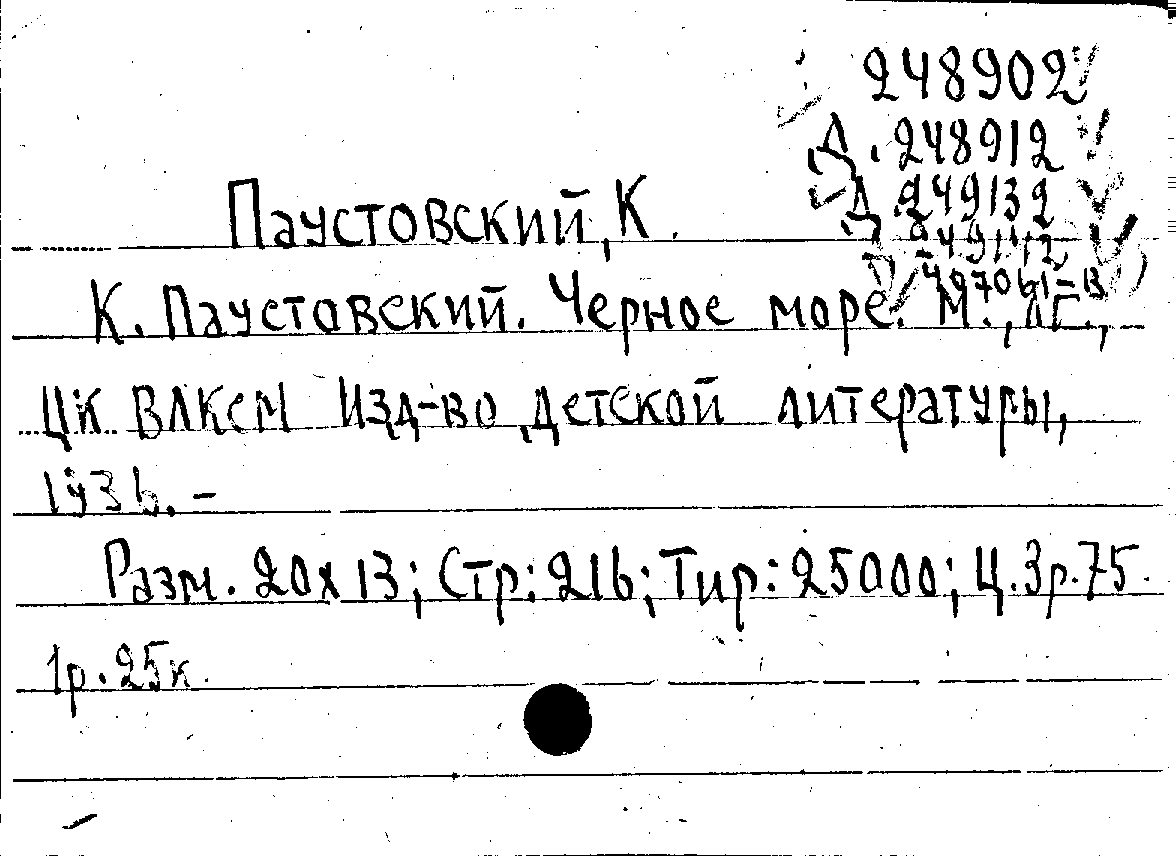 248902
Д. 248912
Д 249132
249112
Паустовский, К.
497061-13
К. Паустовский. Черное море. М., ЛГ.,
ЦК ВЛКСМ Изд-во детской литературы,
1936. -
Разм. 20x13; Стр: 216; Тир: 25000; Ц. 3р.75
1р. 25к.